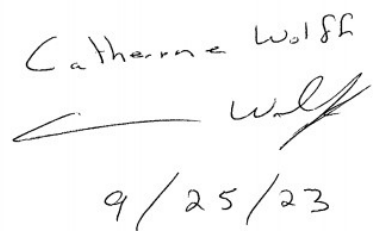 Catherine Wolff
C Wolff
9/25/23